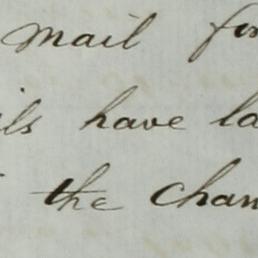 mail for
ils have la
the chan